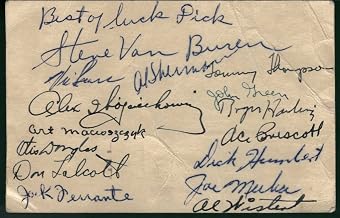 Best of luck Dick
Steve Van Buren
Vic Lindskog
Al Sherman
Tommy Thompson
Alex Wojciechowicz
John Green
Roger Harding
Art Macioszczyk
Ace Prescott
Otis Douglas
Dick Humbert
Don Talcott
Joe Muha
Jack Ferrante
Al Wistert